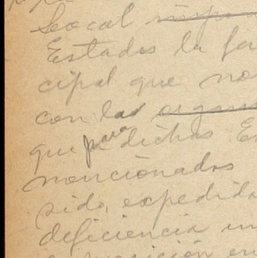 Local
Estados la fa
cipal que no
con las
que para dichas E
mencionados
sido, expedida
deficiencia in
en